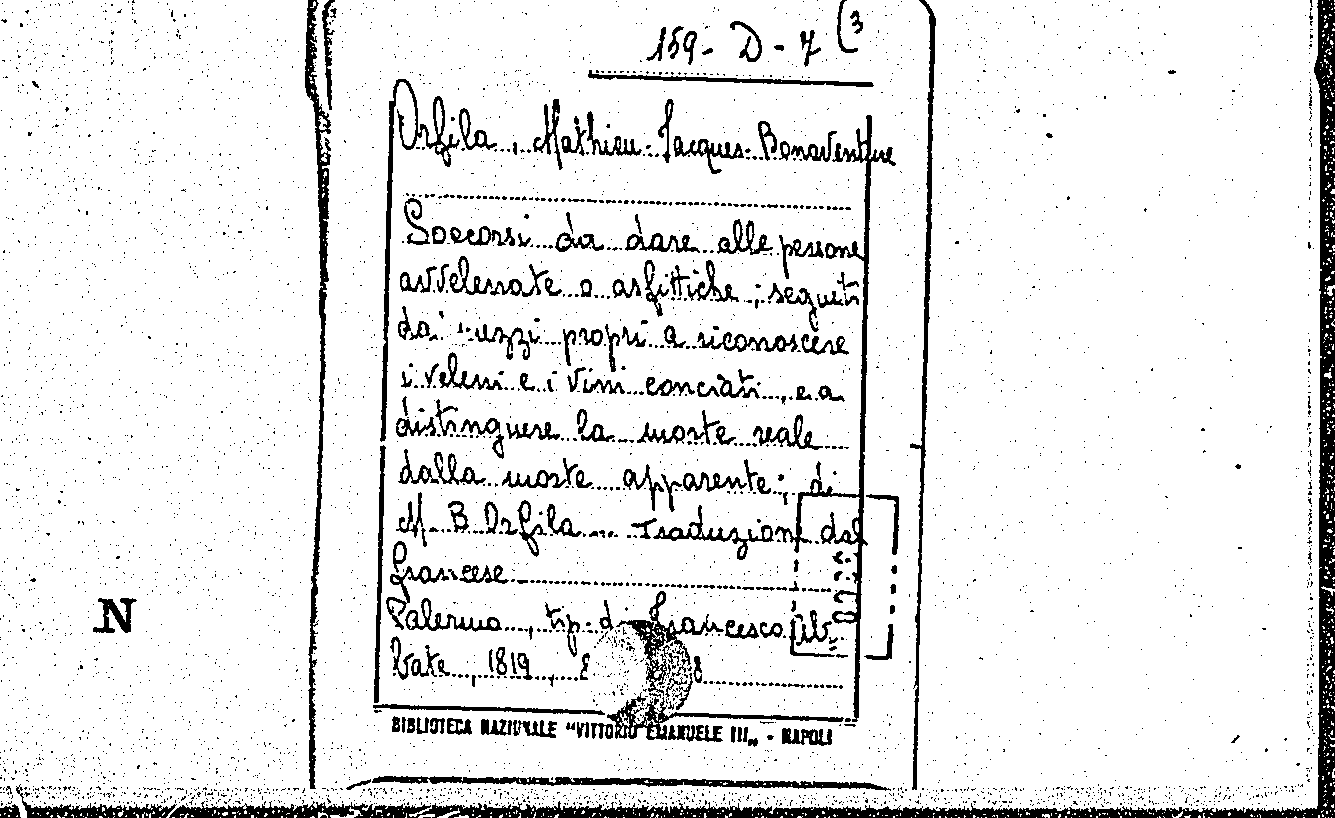 159 - D - 7 (3
Orfila, Mathieu-Jacques-Bonaventure
Soccorsi da dare alle persone
avvelenate o asfittiche; seguiti
dai mezzi propri a riconoscere
i veleni e i vini conciati, e a
distinguere la morte reale
dalla morte apparente; di
M. B. Orfila... Traduzione dal
francese
Palermo, tip. di Francesco
bate, 1819, 8
BIBLIOTECA NAZIONALE "VITTORIO EMANUELE III„ - NAPOLI
N